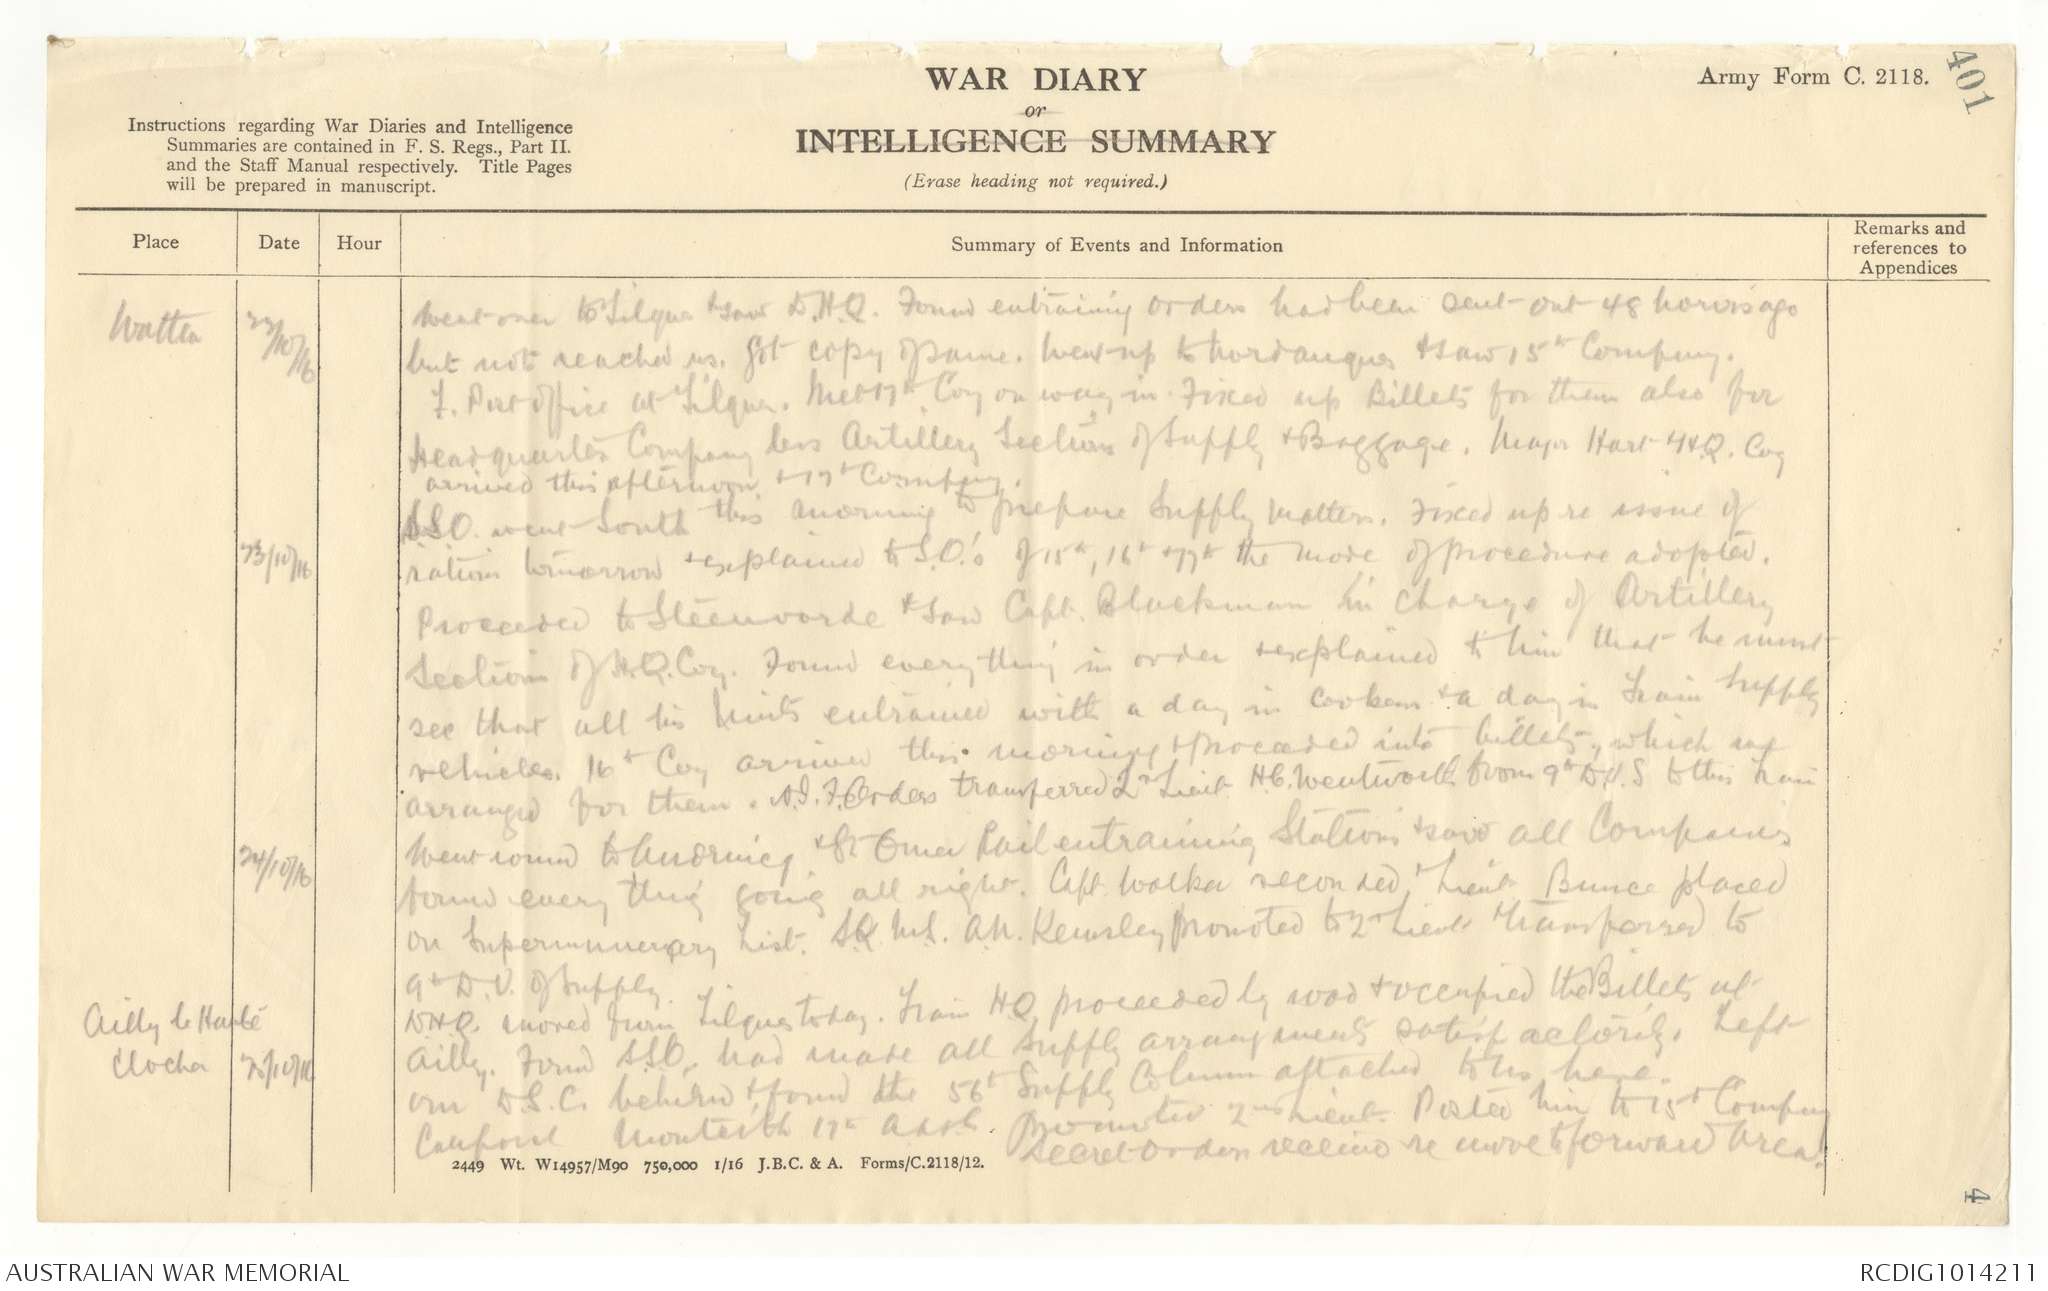 WAR DIARY
or
INTELLIGENCE SUMMARY
(Erase heading not required.)
Army Form C. 2118.
401
Instructions regarding War Diaries and Intelligence
Summaries are contained in F. S. Regs., Part II.
and the Staff Manual respectively. Title Pages
will be prepared in manuscript.
Place
Date
Hour
Summary of Events and Information
Remarks and
references to
Appendices
Watten
22/10/16
Went over to Tilques & saw D.H.Q. Found entraining orders had been sent out 48 hours ago
but not reached us. Got copy of same. Went up to Nordausques & saw 15th Company.
F. Post office at Tilques. Met 17th Coy on way in. Fixed up Billets for them also for
Headquarters Company less Artillery Sections of Supply & Baggage. Major Hart & H.Q. Coy
arrived this afternoon & 17th Company.
23/10/16
S.S.O. went South this morning to prepare Supply matters. Fixed up re issue of
rations tomorrow & explained to S.O.'s of 15th, 16th & 17th the mode of procedure adopted.
Proceeded to Steenvoorde & saw Capt. Blackman in charge of Artillery
Section of H.Q. Coy. Found everything in order & explained to him that he must
see that all his Units entrained with a day in cookers & a day in Train Supply
vehicles. 16th Coy arrived this morning & proceeded into billets, which we
arranged for them. A.I.F. Orders transferred 2nd Lieut H.C. Wentworth from 9th D.U.S to this Train
24/10/16
Went round to Audruicq & St Omer Rail entraining Stations & saw all Companies
found everything going all right. Capt. Walker seconded, & Lieut Bunce placed
on Supernumerary List. S.Q.M.S. A.N. Kemsley promoted to 2nd Lieut & transferred to
9th D.U. of Supply.
Ailly le Haut
Clocher
25/10/16
DHQ. moved from Tilques today. Train H.Q. proceeded by road & occupied the Billets at
Ailly. Found S.S.O. had made all Supply arrangements satisfactorily. Left
our D.S.C. behind & found the 56th Supply Column attached to us here.
Corporal Monteith 17th A.A.S.C. promoted 2nd Lieut. Posted him to 15th Company
Secret orders received re move to forward Area.
2449 Wt. W14957/M90 750,000 1/16 J.B.C. & A. Forms/C.2118/12.
4
AUSTRALIAN WAR MEMORIAL
RCDIG1014211